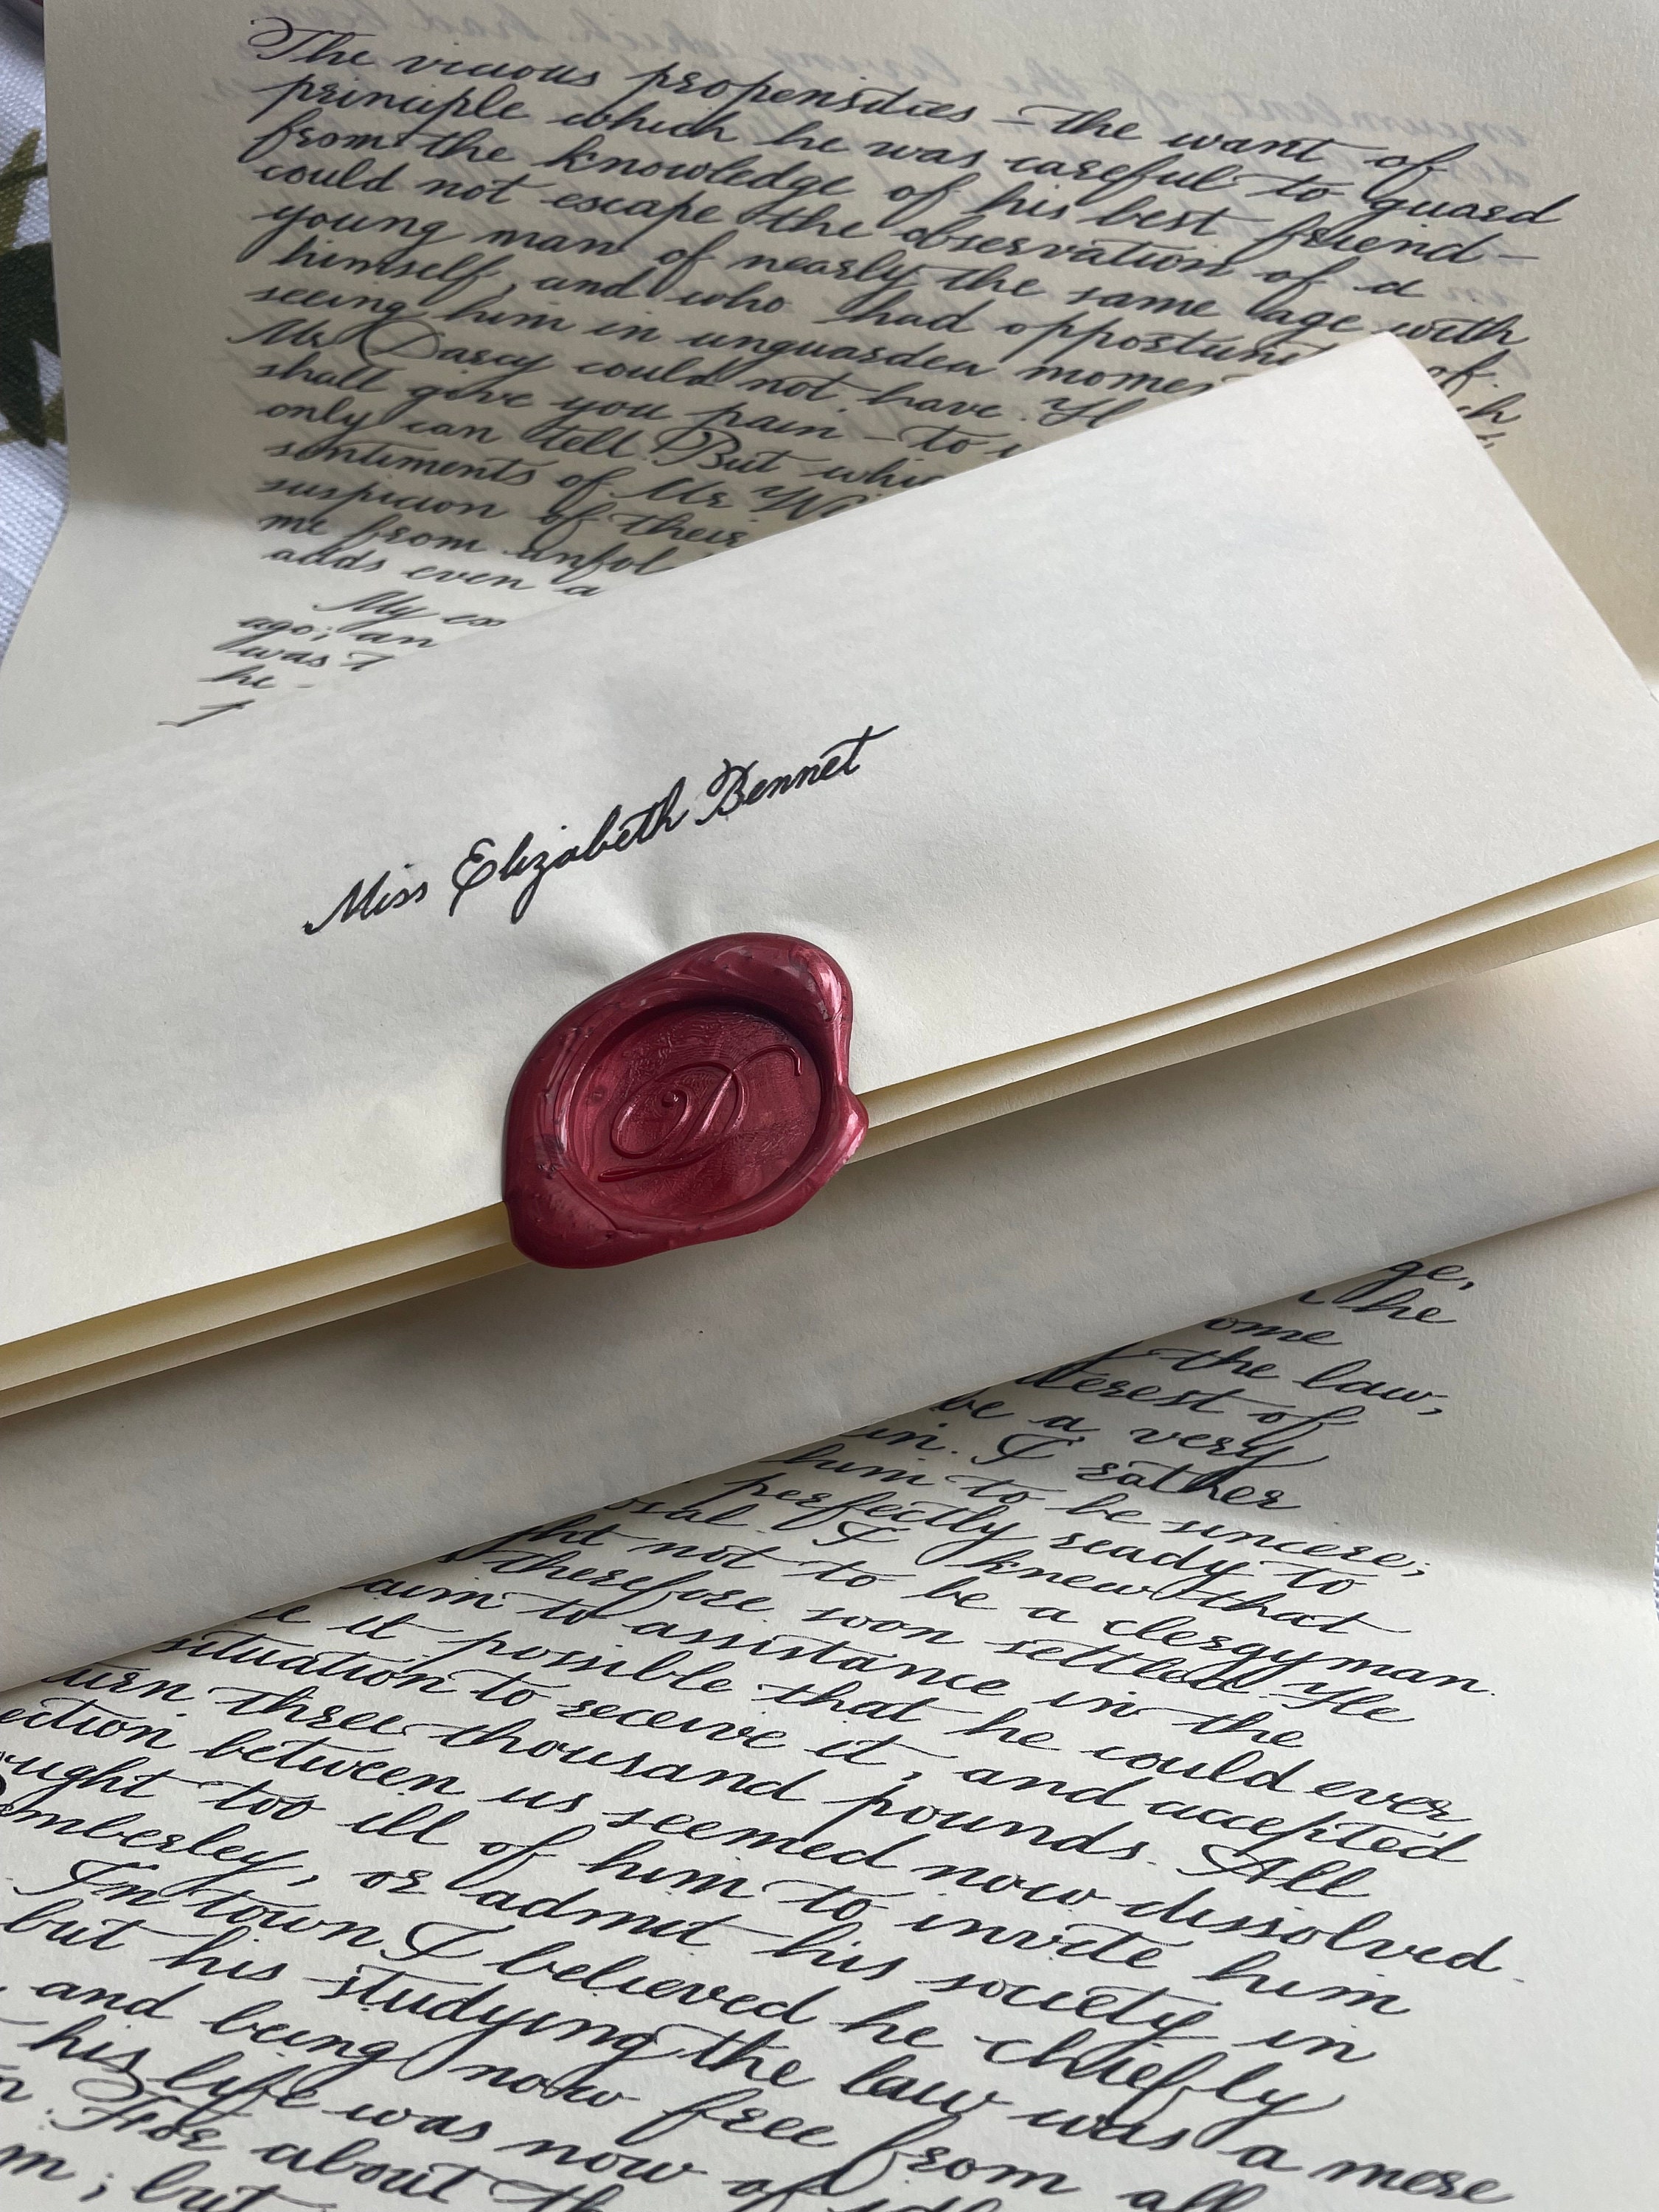 The vicious propensities – the want of
principle which he was careful to guard
from the knowledge of his best friend –
could not escape the observation of a
young man of nearly the same age with
himself, and who had opportuni of
seeing him in unguarded momen ch
Mr Darcy could not have. He
shall give you pain – to
only can tell. But whic
sentiments of Mr Wi
suspicion of their
me from unfol
adds even a
My ex
ago; an
was
he
Miss Elizabeth Bennet
D
ge,
he
ome
the law,
terest of
be a very
in. I rather
him to be sincere;
perfectly ready to
osal. I knew that
ht not to be a clergyman.
therefore soon settled. He
aim to assistance in the
it possible that he could ever
situation to receive it, and accepted
urn three thousand pounds. All
ection between us seemed now dissolved.
ught too ill of him to invite him
mberley, or admit his society in
In town I believed he chiefly
but his studying the law was a mere
and being now free from all
his life was now of
For about th
m; but